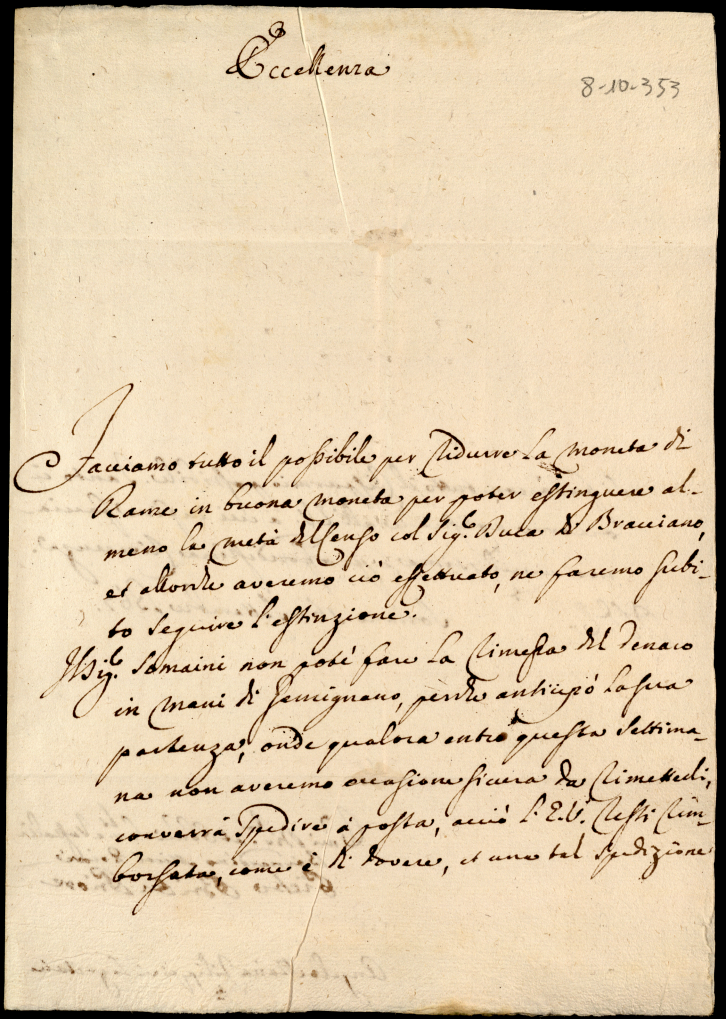 Eccellenza
8-10-353
Facciamo tutto il possibile per ridurre la moneta di
Rame in buona moneta per poter estinguere al-
meno la metà del Censo col Sig.r Duca di Bracciano,
et allorche averemo ciò effettuato, ne faremo subi-
to seguire l'estinzione.
Il Sig.r Somaini non potè fare la rimessa del denaro
in mani di Gemignano, perche anticipò la sua
partenza, onde qualora entro questa settima-
na non averemo occasione sicura da rimetterli,
converrà spedire à posta, acciò l'E.V. resti rim-
borsata, come è di dovere, et una tal spedizione